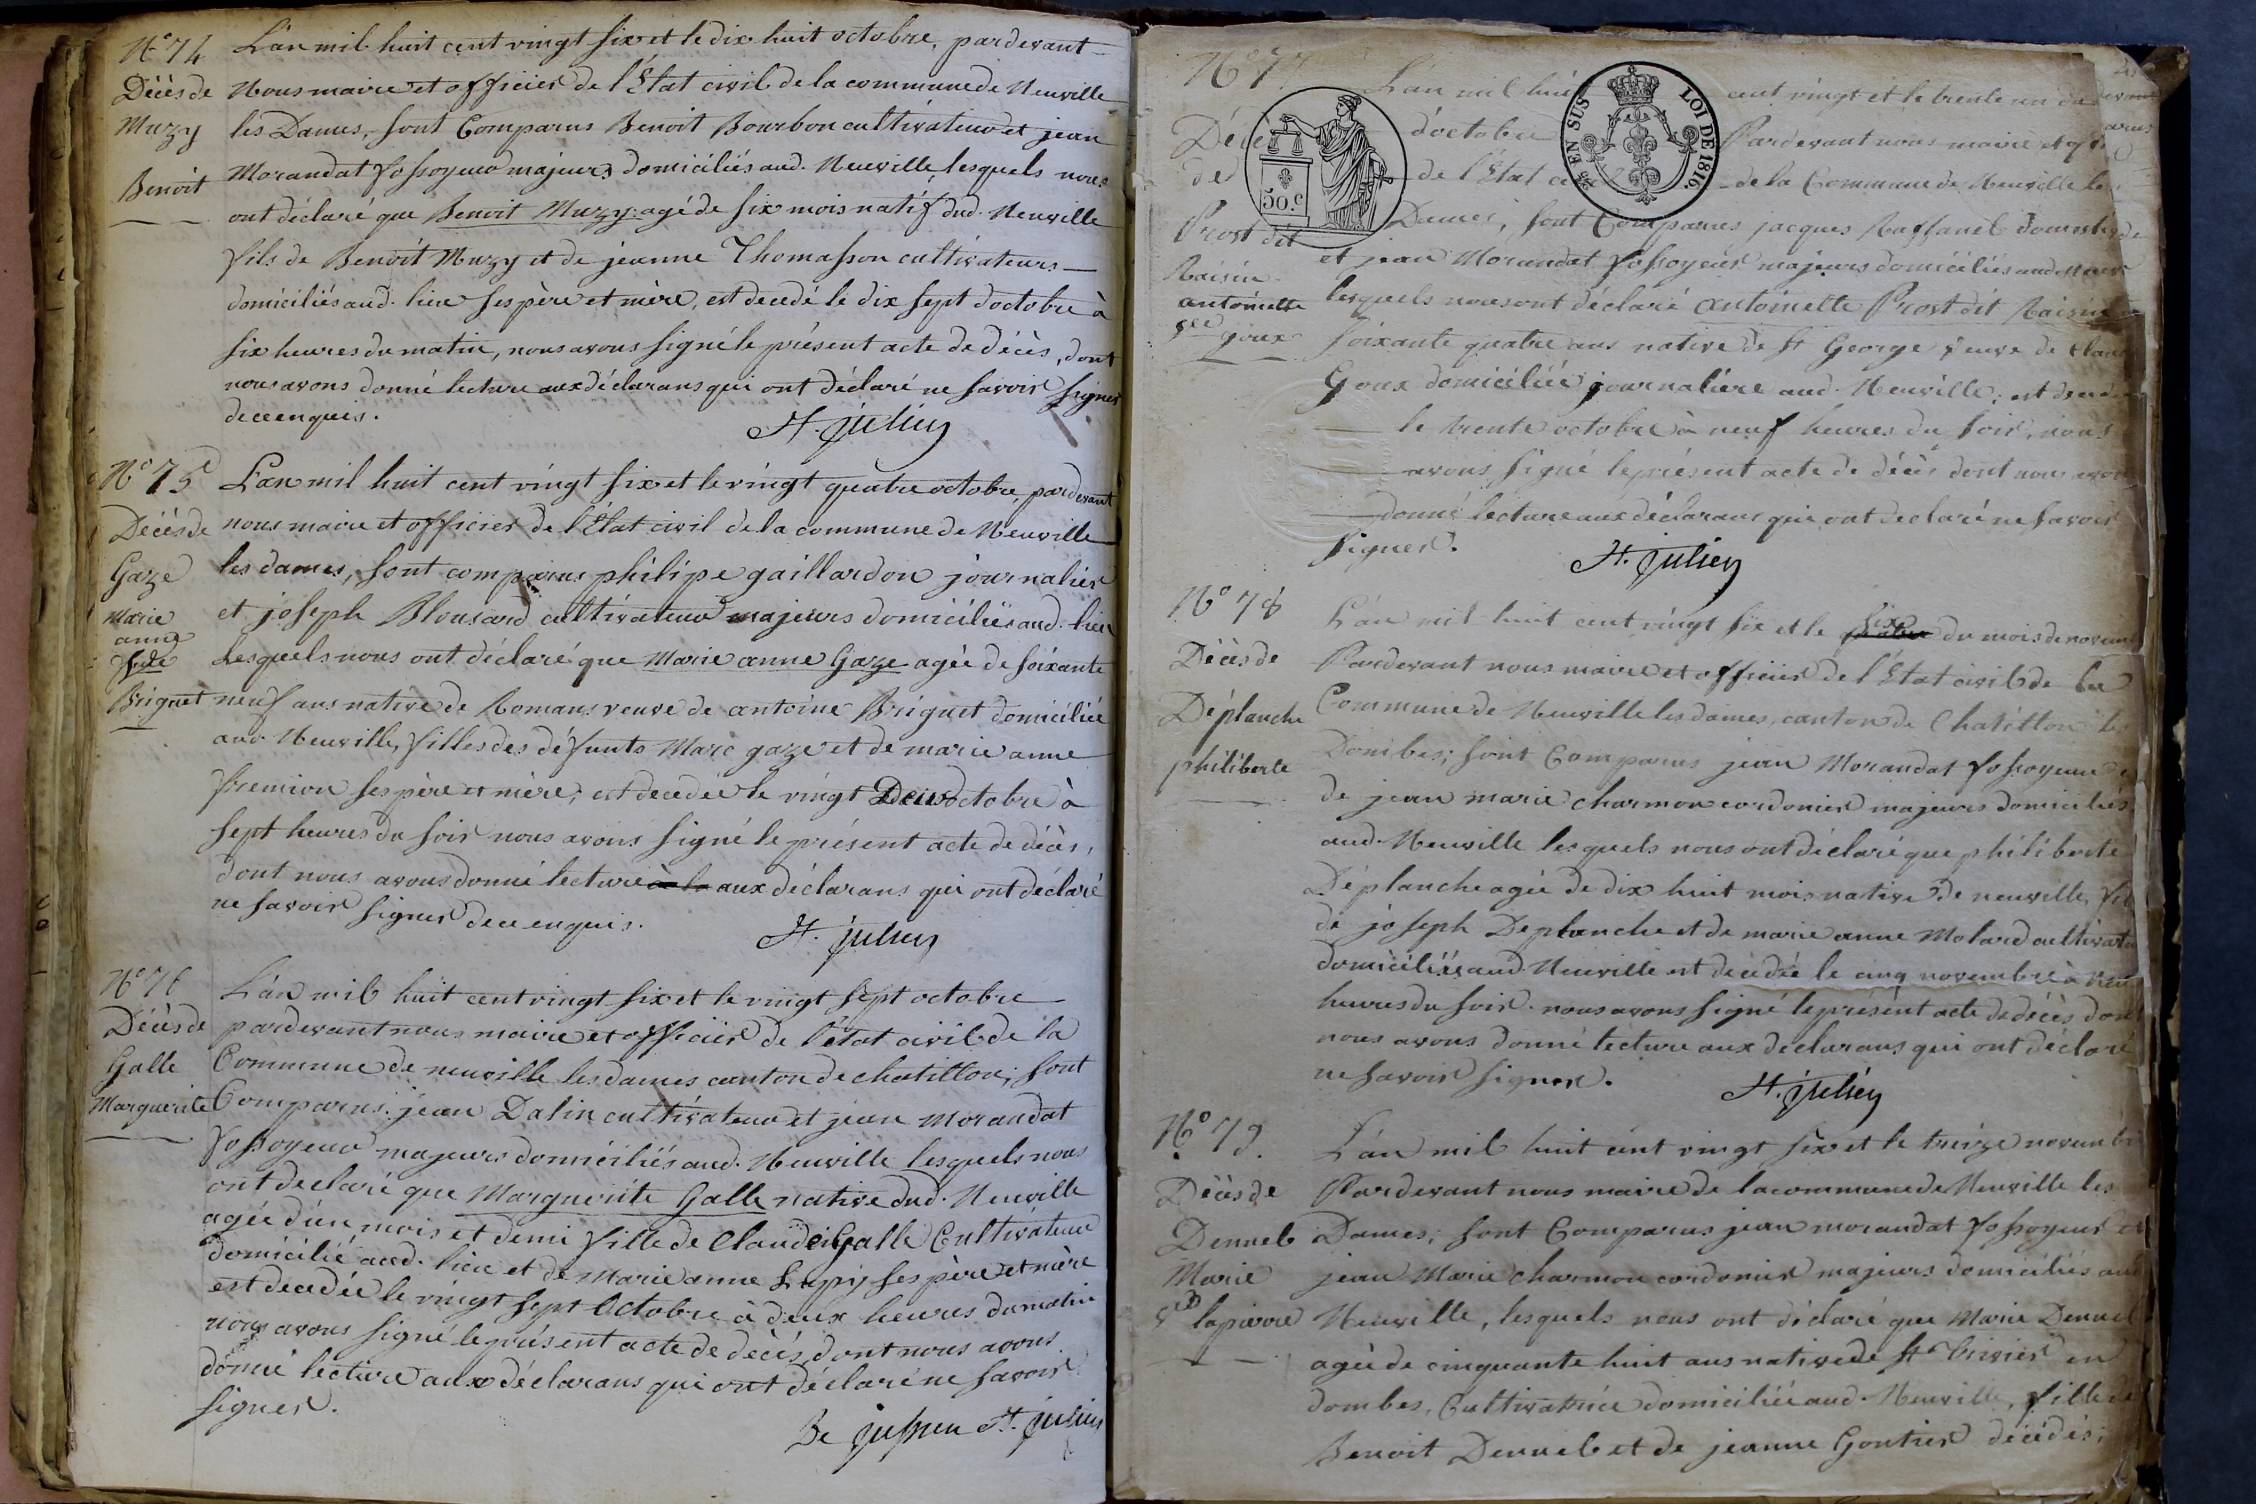 N.° 74
Décès de
Muzy
Benoit
L'an mil huit cent vingt six et le dix huit octobre, pardevant
Nous maire et officier de l'Etat civil de la commune de Neuville
les Dames, sont Comparus Benoit Bourbon cultivateur et jean
Morandat fossoyeur majeurs domiciliés aud. Neuville, lesquels nous
ont déclaré que Benoit Muzy agé de six mois natif dud. Neuville
fils de Benoit Muzy et de jeanne Thomasson cultivateurs
domiciliés aud. lieu ses père et mère, est decedé le dix sept d'octobre à
six heures du matin, nous avons signé le présent acte de décès, dont
nous avons donné lecture aux déclarans qui ont déclaré ne savoir signer
de ce enquis.
St. julien
N.° 75
Décès de
Gaze
Marie
anne
Brignet
L'an mil huit cent vingt six et le vingt quatre octobre, pardevant
nous maire et officier de l'Etat civil de la commune de Neuville
les dames, sont comparus philipe gaillardon journalier
et joseph Blousard cultivateur majeurs domiciliés aud. lieu
lesquels nous ont déclaré que Marie anne Gaze agée de soixante
neuf ans native de Romans veuve de antoine Brignet domiciliée
aud Neuville, filles des défunts Marc gaze et de marie anne
fremion ses père et mère, est decedée le vingt Deux octobre à
sept heures du soir nous avons signé le présent acte de décès,
dont nous avons donné lecture à la aux déclarans qui ont déclaré
ne savoir signer de ce enquis.
St. julien
N.° 76
Décès de
Galle
Marguerite
L'an mil huit cent vingt six et le vingt sept octobre
pardevant nous maire et officier de l'état civil de la
Commune de neuville les dames canton de chatillon, sont
Comparus jean Dalin cultivateur et jean Morandat
fossoyeur majeurs domiciliés aud. Neuville lesquels nous
ont declaré que Marguerite Galle native dud. Neuville
agée d'un mois et demi fille de Claude Galle Cultivateur
domicilié aud. lieu et de Marie anne Lupy ses père et mère
est decedée le vingt sept Octobre à deux heures du matin
nous avons signé le présent acte de décès, dont nous avons
donné lecture aux déclarans qui ont déclaré ne savoir
signer.
De jussieu St. julien
N.° 77
Décès
de
Prost dit
Raisin
antoinette
goux
50.c
25 EN SUS
LOI DE 1816.
L'an mil huit cent vingt et le trente un du
d'octobre Pardevant nous maire et
de l'Etat civil de la Commune de Neuville les
Dames, sont Comparus jacques Raffanel domestique
et jean Morandat fossoyeur majeurs domiciliés aud Neuville
lesquels nous ont déclaré antoinette Prost dit Raisin
soixante quatre ans native de St George veuve de Claude
Goux domiciliée journalière aud. Neuville, est decedée
le trente octobre à neuf heures du soir, nous
avons signé le présent acte de décès dont nous avons
donné lecture aux déclarans qui ont declaré ne savoir
signer.
St. julien
N.° 78
Décès de
Déplanche
philiberte
L'an mil huit cent vingt six et le six du mois de novembre
Pardevant nous maire et officier de l'Etat civil de la
Commune de Neuville les dames, canton de Chatillon les
Dombes, sont Comparus jean Morandat fossoyeur
de jean marie charmon cordonier majeurs domiciliés
aud. Neuville lesquels nous ont déclaré que philiberte
Déplanche agée de dix huit mois native de neuville, fille
de joseph Deplanche et de marie anne Molard cultivateurs
domiciliés aud Neuville est decedée le cinq novembre à neuf
heures du soir. nous avons signé le présent acte de décès dont
nous avons donné lecture aux déclarans qui ont declaré
ne savoir signer.
St. julien
N.° 79.
Décès de
Dennel
Marie
lapierre
L'an mil huit cent vingt six et le treize novembre
Pardevant nous maire de la commune de Neuville les
Dames, sont Comparus jean morandat fossoyeur et
jean Marie charmon cordonier majeurs domiciliés aud
Neuville, lesquels nous ont déclaré que Marie Dennel
agée de cinquante huit ans native de St Trivier en
dombes, Cultivatrice domiciliée aud. Neuville, fille de
Benoit Dennel et de jeanne Gontier décédés;